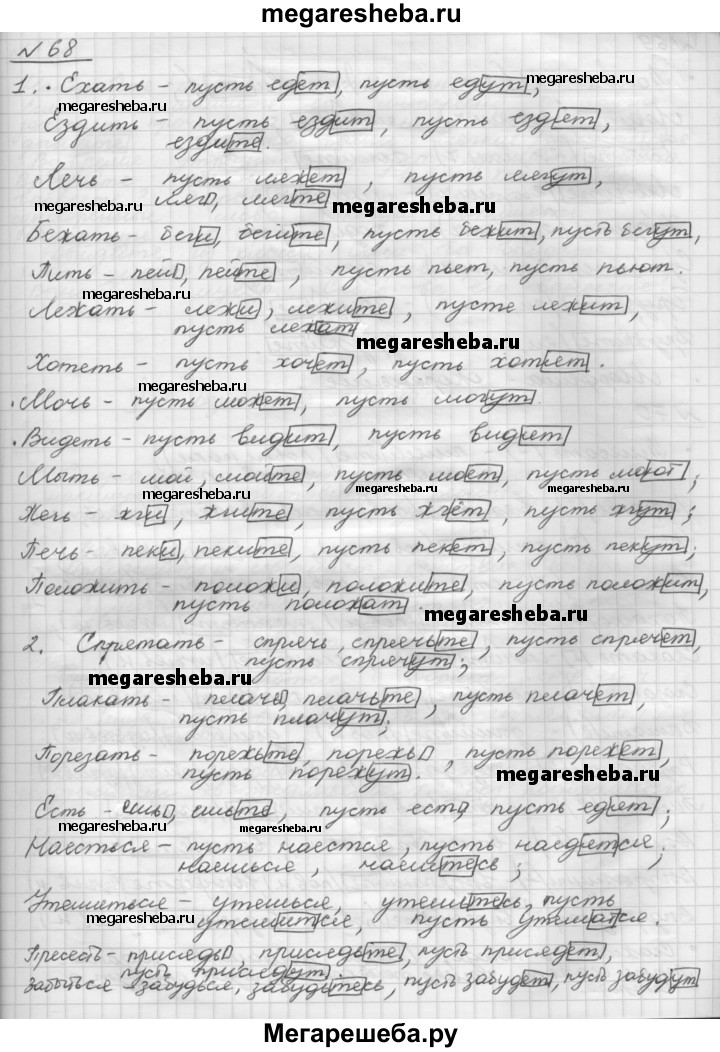 megaresheba.ru
№ 68
1. • Ехать – пусть едет, пусть едут, megaresheba.ru
megaresheba.ru
Ездить – пусть ездит, пусть ездят,
ездите.
Лечь – пусть ляжет, пусть лягут,
megaresheba.ru ляг, лягте megaresheba.ru
Бежать – беги, бегите, пусть бежит, пусть бегут,
Пить – пей, пейте, пусть пьет, пусть пьют.
megaresheba.ru
Лежать – лежи, лежите, пусть лежит,
пусть лежат
megaresheba.ru
Хотеть – пусть хочет, пусть хотят.
megaresheba.ru
• Мочь – пусть может, пусть могут.
• Видеть – пусть видит, пусть видят
Мыть – мой, мойте, пусть моет, пусть моют;
megaresheba.ru megaresheba.ru megaresheba.ru
Жечь – жги, жгите, пусть жгёт, пусть жгут;
Печь – пеки, пеките, пусть пекет, пусть пекут;
Положить – положи, положите, пусть положит,
пусть положат.
megaresheba.ru
2. Спрятать – спрячь, спрячьте, пусть спрячет,
пусть спрячут;
megaresheba.ru
Плакать – плачь, плачьте, пусть плачет,
пусть плачут;
Порезать – порежьте, порежь, пусть порежет,
пусть порежут.
megaresheba.ru
Есть – ешь, ешьте, пусть ест, пусть едят;
megaresheba.ru megaresheba.ru
Наесться – пусть наестся, пусть наедятся;
наешься, наешьтесь;
Утешаться – утешься, утешьтесь, пусть
megaresheba.ru утешится, пусть утешатся.
Присесть – присядь, присядьте, пусть присядет,
пусть присядут.
забыться – забудься, забудьтесь, пусть забудет, пусть забудут
Мегарешеба.ру